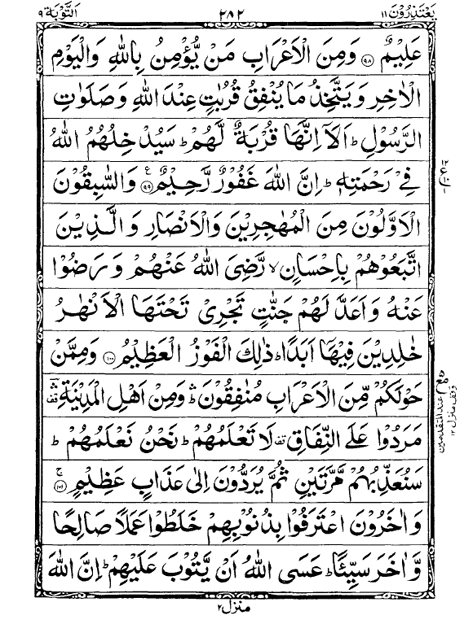 یعتذرون ۱۱ ۲۸۲ التوبة ۹
عَلِيْمٌ ۝۹۸ وَمِنَ الْاَعْرَابِ مَنْ يُّؤْمِنُ بِاللّٰهِ وَالْيَوْمِ
الْاٰخِرِ وَيَتَّخِذُ مَا يُنْفِقُ قُرُبٰتٍ عِنْدَ اللّٰهِ وَصَلَوٰتِ
الرَّسُوْلِ ؕ اَلَاۤ اِنَّهَا قُرْبَةٌ لَّهُمْ ؕ سَيُدْخِلُهُمُ اللّٰهُ
فِيْ رَحْمَتِهٖ ؕ اِنَّ اللّٰهَ غَفُوْرٌ رَّحِيْمٌ ۝۹۹ وَالسّٰبِقُوْنَ
الْاَوَّلُوْنَ مِنَ الْمُهٰجِرِيْنَ وَالْاَنْصَارِ وَالَّذِيْنَ
اتَّبَعُوْهُمْ بِاِحْسَانٍ ۙ رَّضِيَ اللّٰهُ عَنْهُمْ وَرَضُوْا
عَنْهُ وَاَعَدَّ لَهُمْ جَنّٰتٍ تَجْرِيْ تَحْتَهَا الْاَنْهٰرُ
خٰلِدِيْنَ فِيْهَاۤ اَبَدًا ؕ ذٰلِكَ الْفَوْزُ الْعَظِيْمُ ۝۱۰۰ وَمِمَّنْ
حَوْلَكُمْ مِّنَ الْاَعْرَابِ مُنٰفِقُوْنَ ۛؕ وَمِنْ اَهْلِ الْمَدِيْنَةِ ۛؔ
مَرَدُوْا عَلَى النِّفَاقِ ۟ لَا تَعْلَمُهُمْ ؕ نَحْنُ نَعْلَمُهُمْ ؕ
سَنُعَذِّبُهُمْ مَّرَّتَيْنِ ثُمَّ يُرَدُّوْنَ اِلٰى عَذَابٍ عَظِيْمٍ ۝۱۰۱
وَاٰخَرُوْنَ اعْتَرَفُوْا بِذُنُوْبِهِمْ خَلَطُوْا عَمَلًا صَالِحًا
وَّاٰخَرَ سَيِّئًا ؕ عَسَى اللّٰهُ اَنْ يَّتُوْبَ عَلَيْهِمْ ؕ اِنَّ اللّٰهَ
منزل ۲